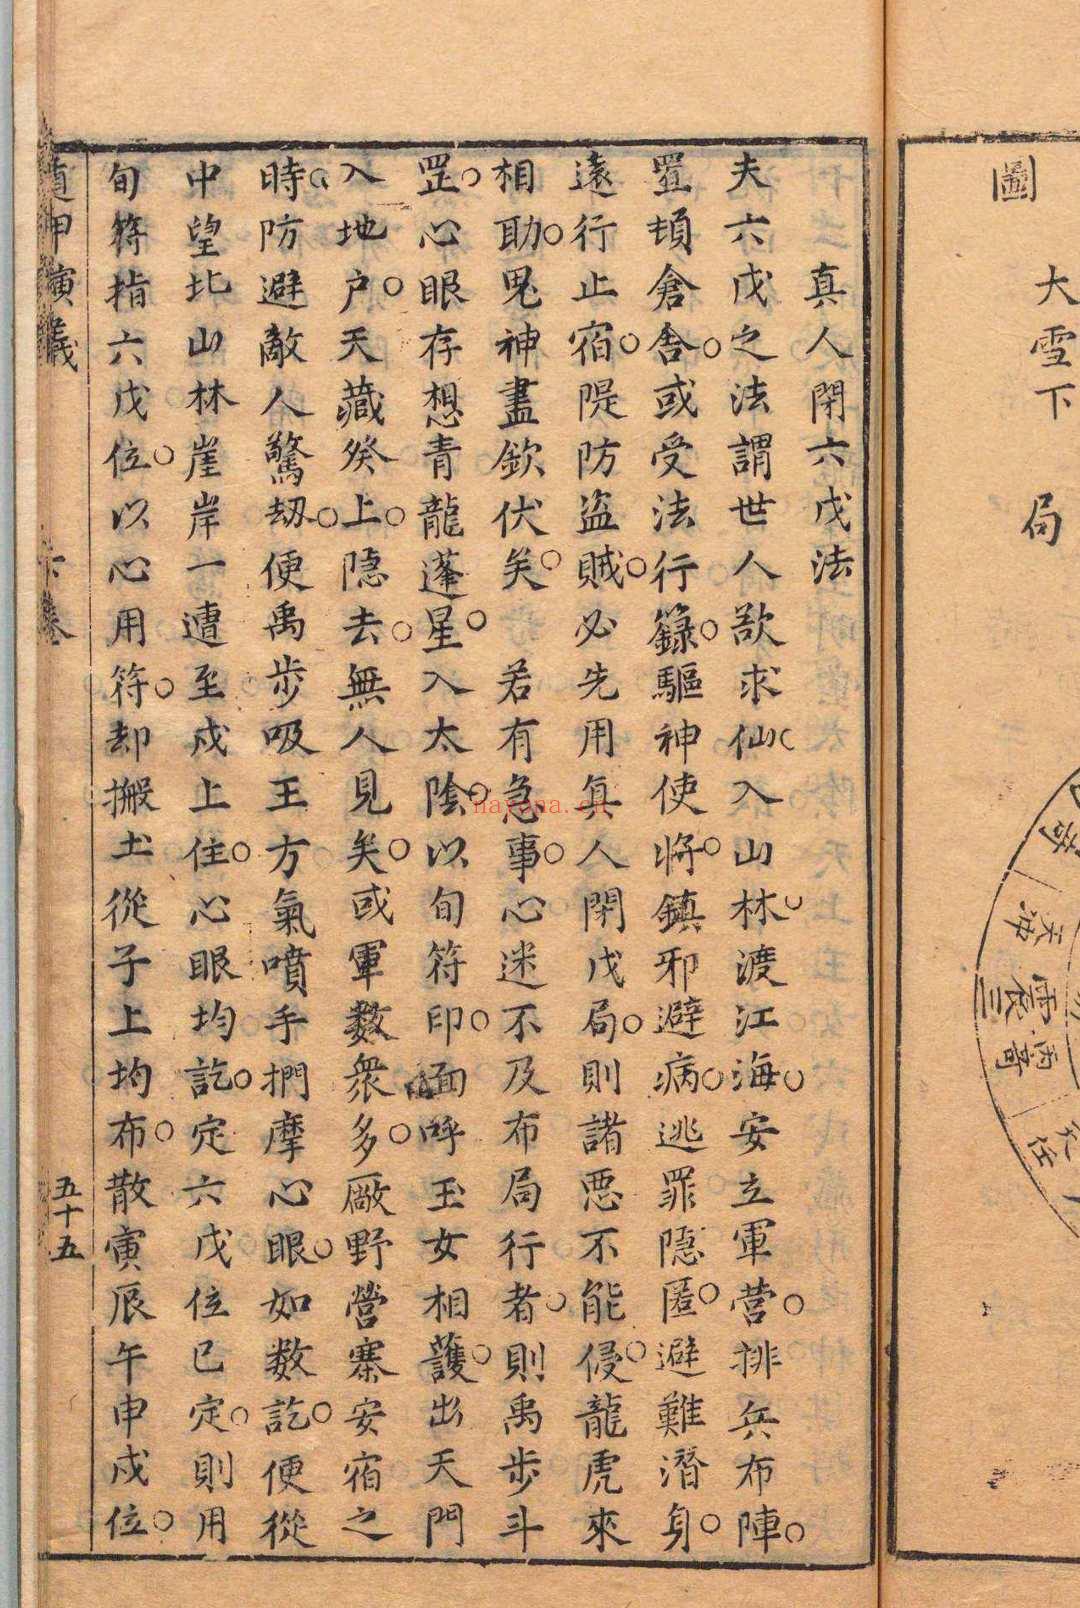 圖
大雪下局
天冲
震三
丙奇
天任
真人閉六戊法
夫六戊之法謂世人欲求仙入山林渡江海安立軍營排兵布陣
置頓倉舍或受法行籙驅神使將鎮邪避病逃罪隱匿避難潛身
遠行止宿隄防盜賊必先用真人閉戊局則諸惡不能侵龍虎來
相助鬼神盡欽伏矣若有急事心迷不及布局行者則禹步斗
罡心眼存想青龍蓬星入太陰以旬符印面呼玉女相護出天門
入地户天藏癸上隱去無人見矣或軍數衆多厰野營寨安宿之
時防避敵人驚刼便禹步吸王方氣噴手捫摩心眼如數訖便從
中望北山林崖岸一遭至戍上住心眼均訖定六戊位已定則用
旬符指六戊位以心用符却搬土從子上均布散寅辰午申戍位
遁甲演義
卷
五十五
nayona.cn